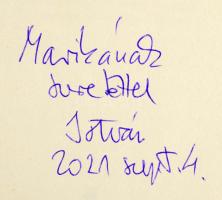 Marikának
szeretettel
István
2021 szept. 4.